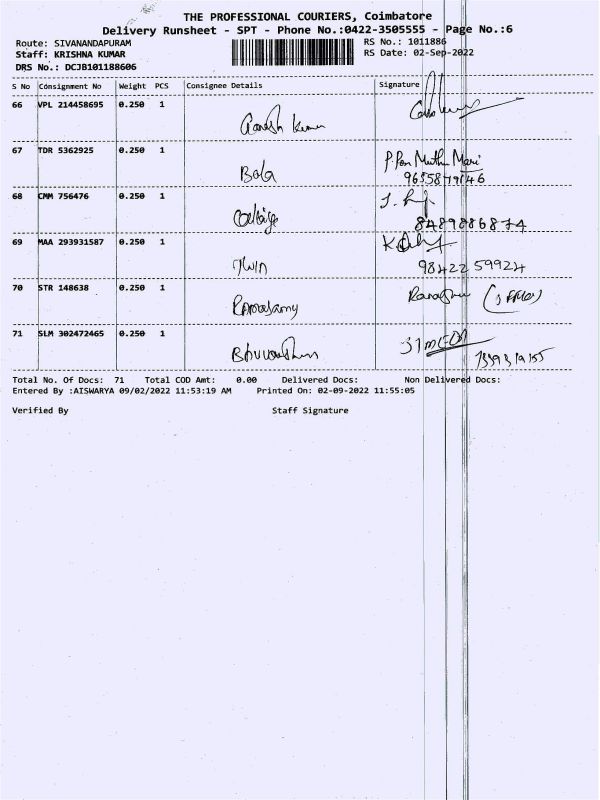 THE PROFESSIONAL COURIERS, Coimbatore
Delivery Runsheet - SPT - Phone No.:0422-3505555 - Page No.:6
Route: SIVANANDAPURAM RS No.: 1011886
Staff: KRISHNA KUMAR RS Date: 02-Sep-2022
DRS No.: DCJB101188606
S No Consignment No Weight PCS Consignee Details Signature
66 VPL 214458695 0.250 1
Ganesh Kumar
67 TDR 5362925 0.250 1 P. Pon Muthu Mari
Bala
68 CMM 756476 0.250 1
8489886874
69 MAA 293931587 0.250 1
98422 59924
70 STR 148638 0.250 1
Ramasamy
71 SLM 302472465 0.250 1
Total No. Of Docs: 71 Total COD Amt: 0.00 Delivered Docs: Non Delivered Docs:
Entered By :AISWARYA 09/02/2022 11:53:19 AM Printed On: 02-09-2022 11:55:05
Verified By Staff Signature